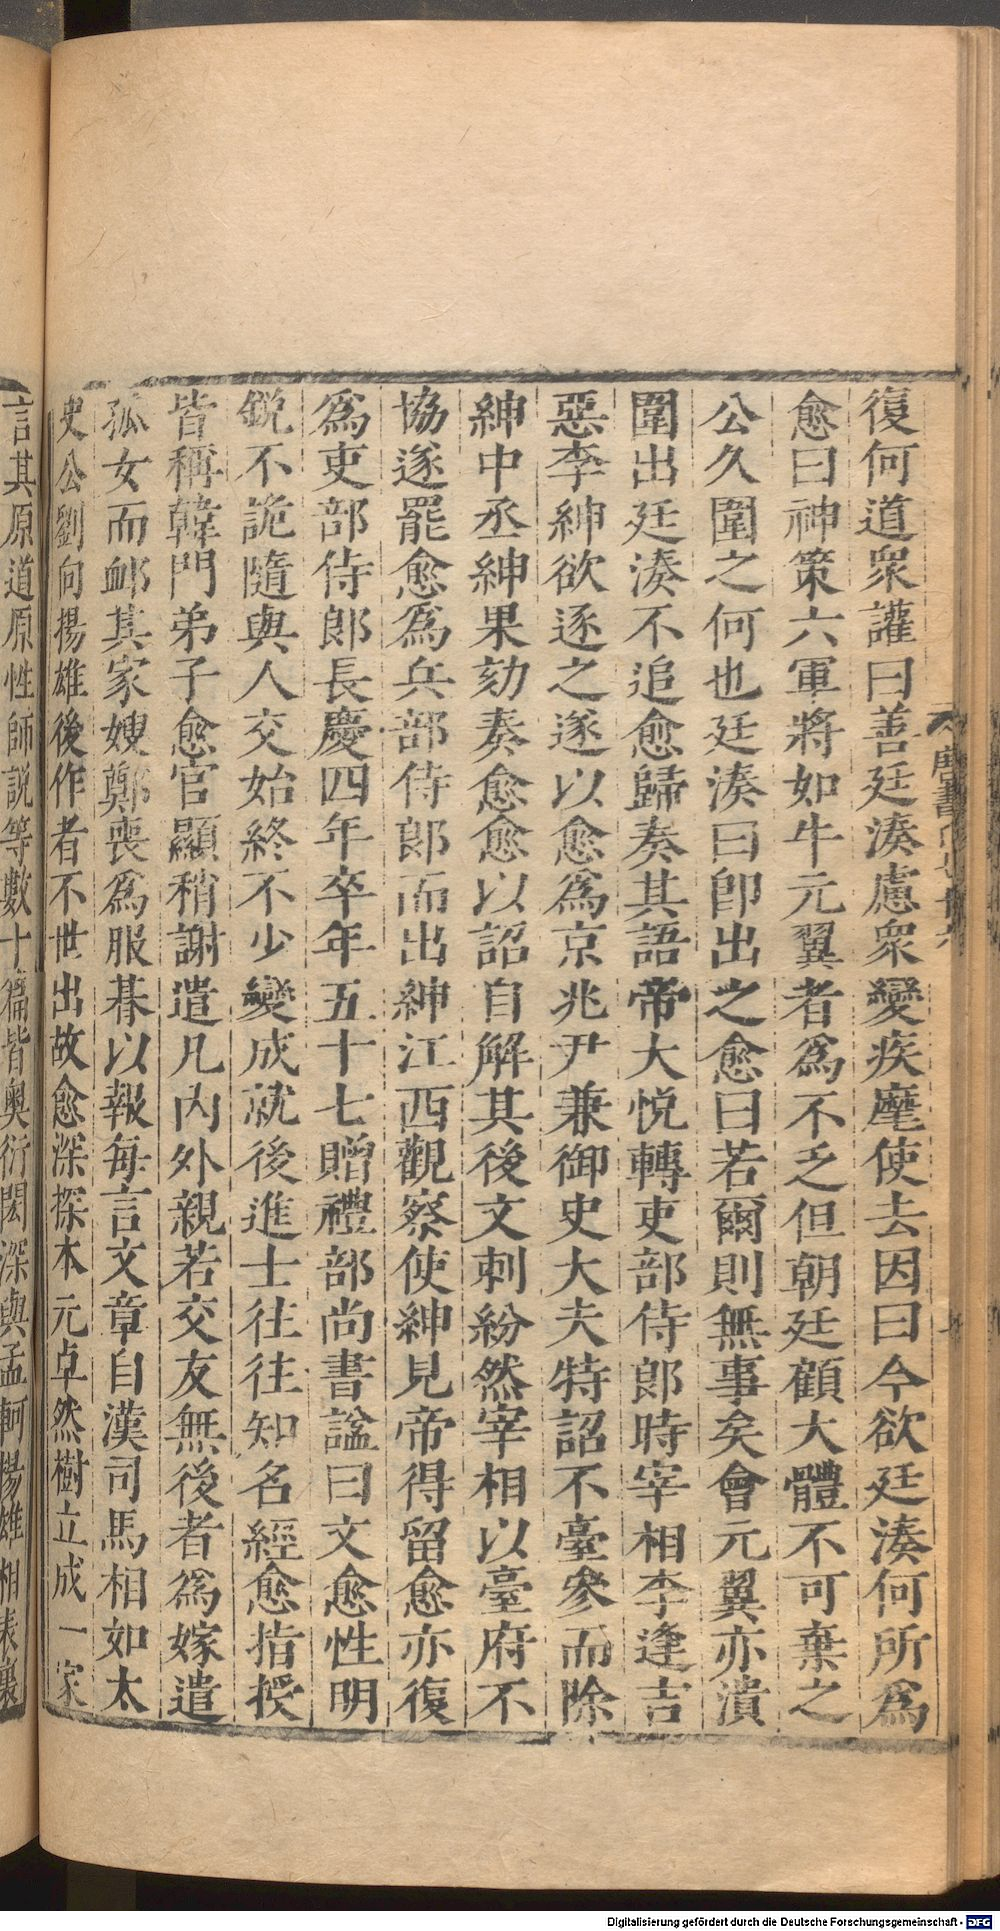 復何道衆讙曰善廷湊慮衆變疾麾使去因曰今欲廷湊何所爲
愈曰神策六軍將如牛元翼者爲不乏但朝廷顧大體不可棄之
公久圍之何也廷湊曰卽出之愈曰若爾則無事矣會元翼亦潰
圍出廷湊不追愈歸奏其語帝大悅轉吏部侍郎時宰相李逢吉
惡李紳欲逐之遂以愈爲京兆尹兼御史大夫特詔不臺參而除
紳中丞紳果劾奏愈愈以詔自解其後文刺紛然宰相以臺府不
協遂罷愈爲兵部侍郎而出紳江西觀察使紳見帝得留愈亦復
爲吏部侍郎長慶四年卒年五十七贈禮部尚書諡曰文愈性明
鋭不詭隨與人交始終不少變成就後進士往往知名經愈指授
皆稱韓門弟子愈官顯稍謝遣凡内外親若交友無後者爲嫁遣
孤女而卹其家嫂鄭喪爲服朞以報每言文章自漢司馬相如太
史公劉向揚雄後作者不世出故愈深探本元卓然樹立成一家
言其原道原性師説等數十篇皆奧衍閎深與孟軻揚雄相表裏
Digitalisierung gefördert durch die Deutsche Forschungsgemeinschaft - DFG